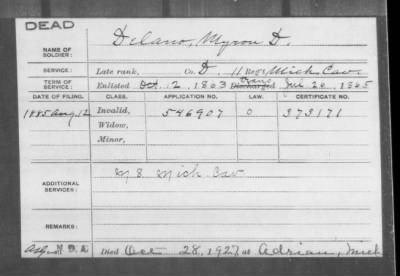 DEAD
NAME OF SOLDIER: Delano, Myron D.
SERVICE: Late rank, Co. D. 11 Reg't Mich. Cav.
TERM OF SERVICE: Enlisted Oct. 2, 1863 Discharged trans Jul 20, 1865
DATE OF FILING. CLASS. APPLICATION NO. LAW. CERTIFICATE NO.
1885 Aug. 12 Invalid, 546907 O 373171
Widow,
Minor,
ADDITIONAL SERVICES: M 8 Mich Cav
REMARKS:
Died Dec 28, 1927 at Adrian, Mich